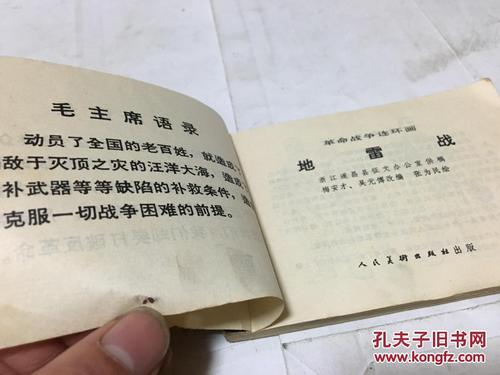 毛主席语录
动员了全国的老百姓，就造成
敌于灭顶之灾的汪洋大海，造
补武器等等缺陷的补救条件，
克服一切战争困难的前提。
革命战争连环画
地雷战
浙江遂昌县征文办公室供稿
梅安才、吴光儒改编 张为民绘
人民美术出版社出版
孔夫子旧书网
www.kongfz.com